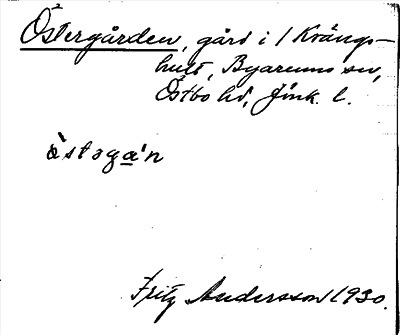 Östergården, gård i 1 Krängs-
hult, Byarums sn,
Östbo hd, Jönk. l.
östəga'n
Fritz Andersson 1930.